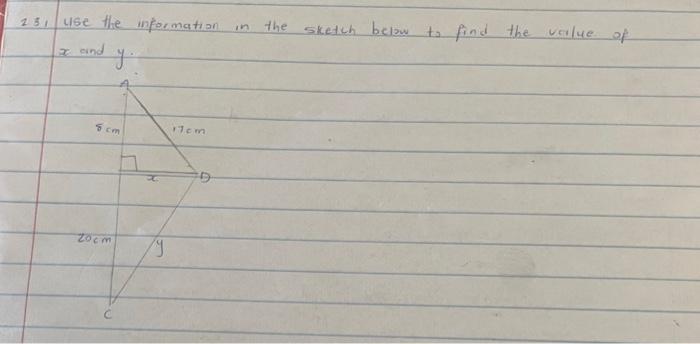 2 3 1 use the information in the sketch below to find the value of
x and y.
A
8 cm 17 cm
x D
20 cm y
C